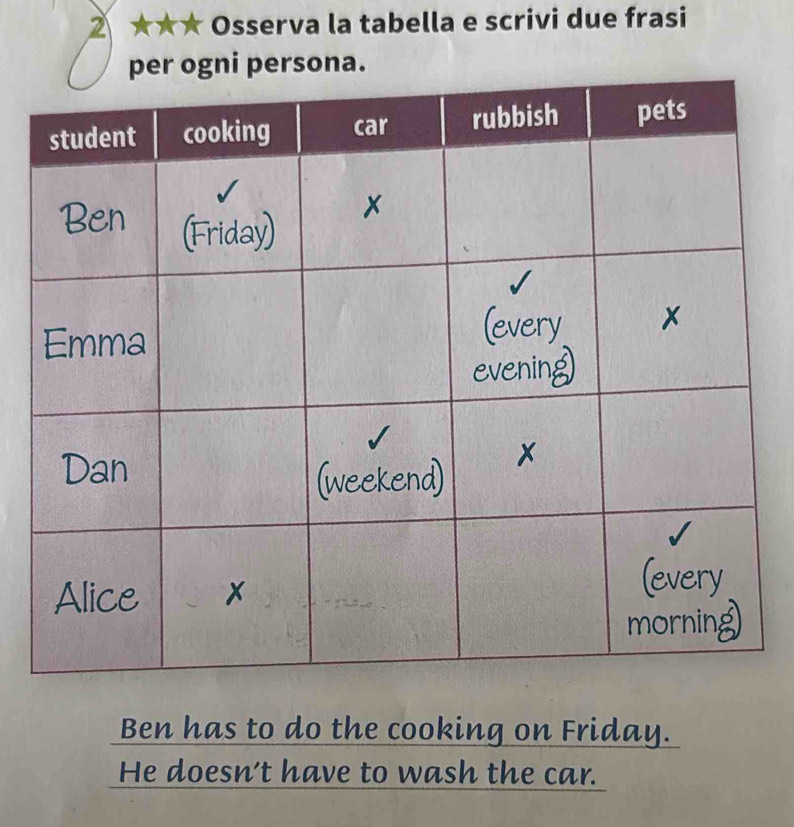 2 ★★★ Osserva la tabella e scrivi due frasi
per ogni persona.
student cooking car rubbish pets
Ben ✓ (Friday) ✗
Emma ✓ (every evening) ✗
Dan ✓ (weekend) ✗
Alice ✗ ✓ (every morning)
Ben has to do the cooking on Friday.
He doesn't have to wash the car.